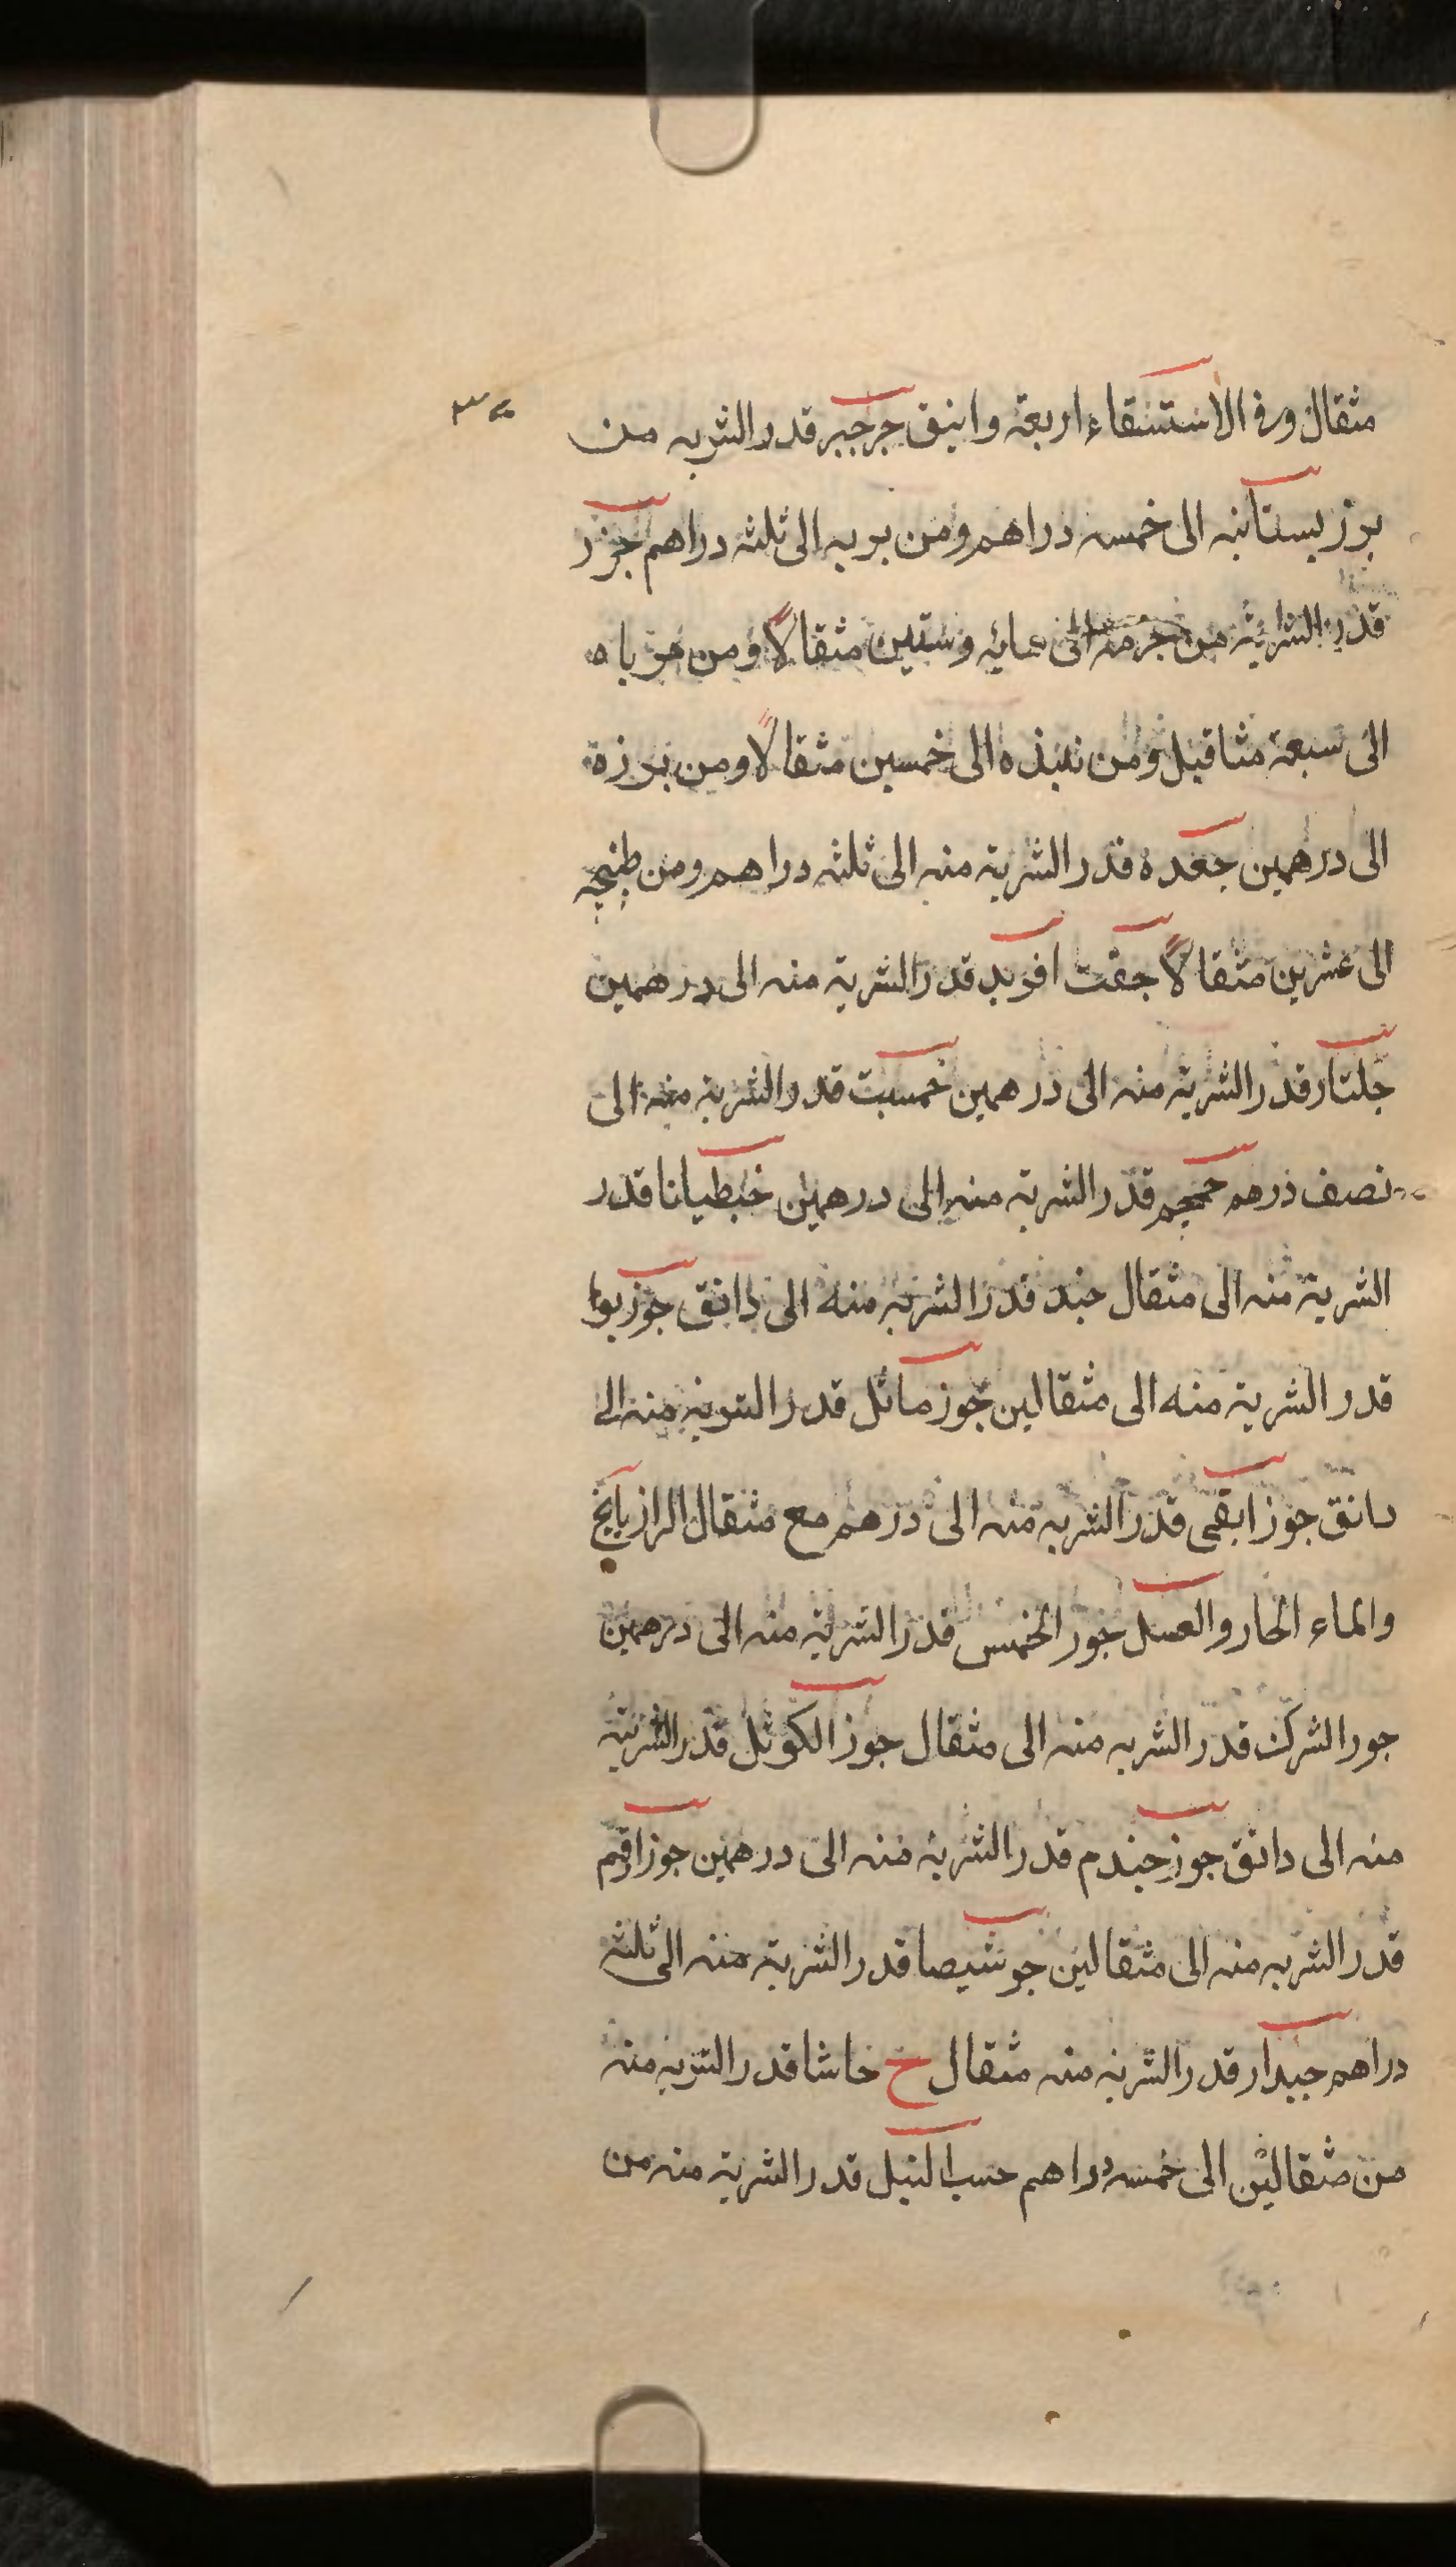 مثقال وفى الاستسقاء اربعة دوانيق جرجير قدر الشربه من
برز بستانيه الى خمسه دراهم ومن بريه الى ثلثه دراهم جزر
قدر الشربة من جرمه الى مايه وستين مثقالاً ومن مرباه
الى سبعة مثاقيل ومن نبيذه الى خمسين مثقالاً ومن بزره
الى درهمين جعده قدر الشربة منه الى ثلثه دراهم ومن طبيخه
الى عشرين مثقالاً جفت افريد قدر الشربة منه الى درهمين
جلنار قدر الشربة منه الى درهمين خمسبت قدر الشربة منه الى
نصف درهم حمحم قدر الشربة منه الى درهمين خبطيانا قدر
الشربة منه الى مثقال جند قدر الشربة منه الى دانق جوزبوا
قدر الشربة منه الى مثقالين جوز ماثل قدر الشربة منه الى
دانق جوز ابقى قدر الشربه منه الى درهم مع مثقال الرازيانج
والماء الحار والعسل جوز الخمس قدر الشربة منه الى درهمين
جور الشرك قدر الشربه منه الى مثقال جوز الكوثل قدر الشربة
منه الى دانق جوز جندم قدر الشربة منه الى درهمين جوز ارقم
قدر الشربه منه الى مثقالين جوشيصا قدر الشربة منه الى ثلثه
دراهم جيدار قدر الشربة منه مثقال ح حاشا قدر الشربة منه
من مثقالين الى خمسه دراهم حب النيل قدر الشربة منه من